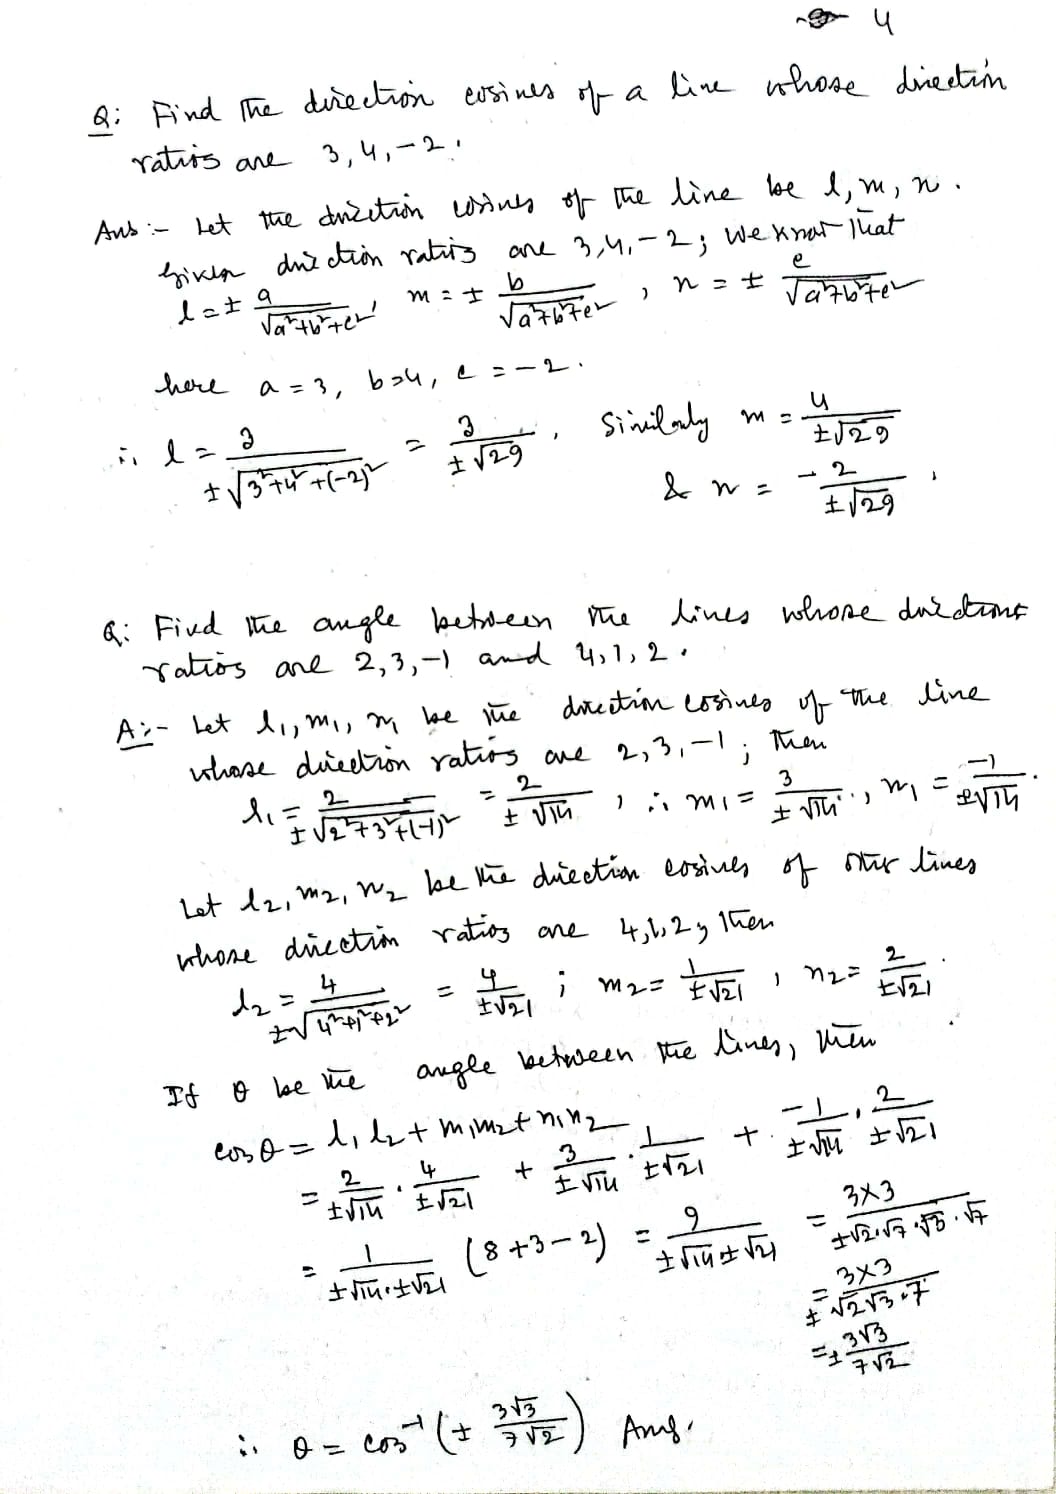 4
Q: Find the direction cosines of a line whose direction
ratios are 3, 4, -2.
Ans :- Let the direction cosines of the line be l, m, n.
Given direction ratios are 3, 4, -2; we know that
l = ± a/√(a²+b²+c²), m = ± b/√(a²+b²+c²), n = ± c/√(a²+b²+c²)
here a = 3, b = 4, c = -2.
∴ l = 3/±√(3²+4²+(-2)²) = 3/±√29, Similarly m = 4/±√29
& n = -2/±√29,
Q: Find the angle between the lines whose directions
ratios are 2, 3, -1 and 4, 1, 2.
A:- Let l₁, m₁, n₁ be the direction cosines of the line
whose direction ratios are 2, 3, -1; then
l₁ = 2/±√(2²+3²+(-1)²) = 2/±√14, ∴ m₁ = 3/±√14, n₁ = -1/±√14.
Let l₂, m₂, n₂ be the direction cosines of other lines
whose direction ratios are 4, 1, 2, then
l₂ = 4/±√(4²+1²+2²) = 4/±√21; m₂ = 1/±√21, n₂ = 2/±√21.
If θ be the angle between the lines, then
cos θ = l₁l₂ + m₁m₂ + n₁n₂
= 2/±√14 · 4/±√21 + 3/±√14 · 1/±√21 + -1/±√14 · 2/±√21
= 1/±√14·±√21 (8+3-2) = 9/±√14±√21 = 3×3/±√2·√7·√3·√7
= 3×3/±√2√3·7
= ± 3√3/7√2
∴ θ = cos⁻¹(± 3√3/7√2) Ans.